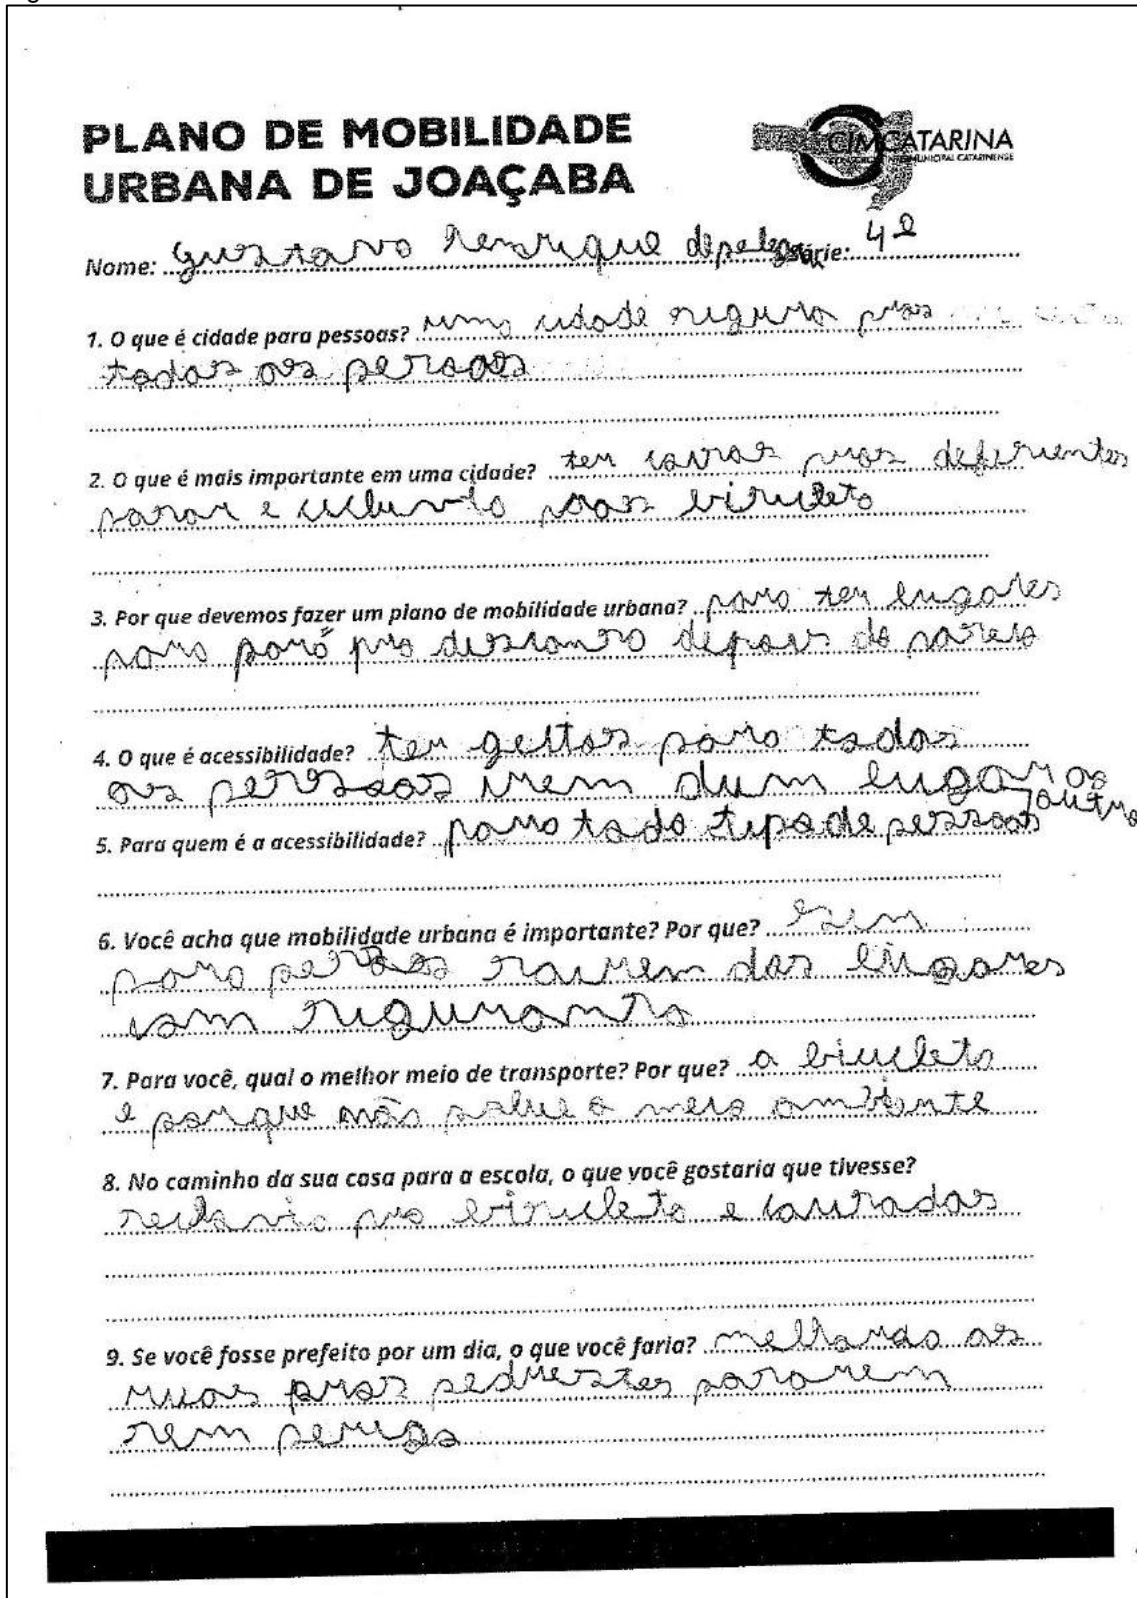 PLANO DE MOBILIDADE
URBANA DE JOAÇABA
CIMCATARINA
Nome: gustavo henrique Série: 4º
1. O que é cidade para pessoas? uma cidade segura pras
todas as pessoas
2. O que é mais importante em uma cidade? ter coisas pros deferientes
e pras
3. Por que devemos fazer um plano de mobilidade urbana? para ter lugares
para pará pra descanso depois do
4. O que é acessibilidade? ter geitos para todas
as pessoas irem dum lugar ao
outro
5. Para quem é a acessibilidade? para todo tipo de pessoas
6. Você acha que mobilidade urbana é importante? Por que? sim
para pessoas sairem dos lugares
com
7. Para você, qual o melhor meio de transporte? Por que? a bicicleta
é porque não polue o meio ambiente
8. No caminho da sua casa para a escola, o que você gostaria que tivesse?
pra e
9. Se você fosse prefeito por um dia, o que você faria? as
ruas pros pasarem
sem perigo